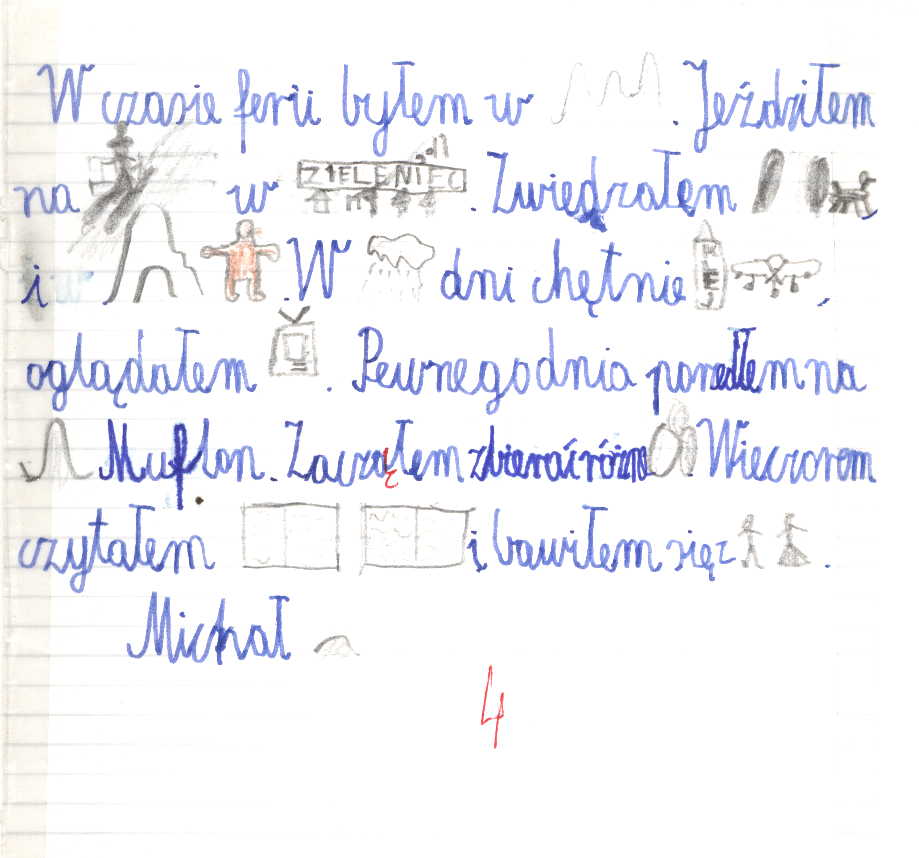 W czasie ferii byłem w . Jeździłem
na w ZIELENIEC . Zwiedzałem ,
i w . W dni chętnie KLEJ ,
oglądałem . Pewnego dnia poszedłem na
Muflon. Zacząłem zbierać różne . Wieczorem
czytałem i bawiłem się z .
Michał
4